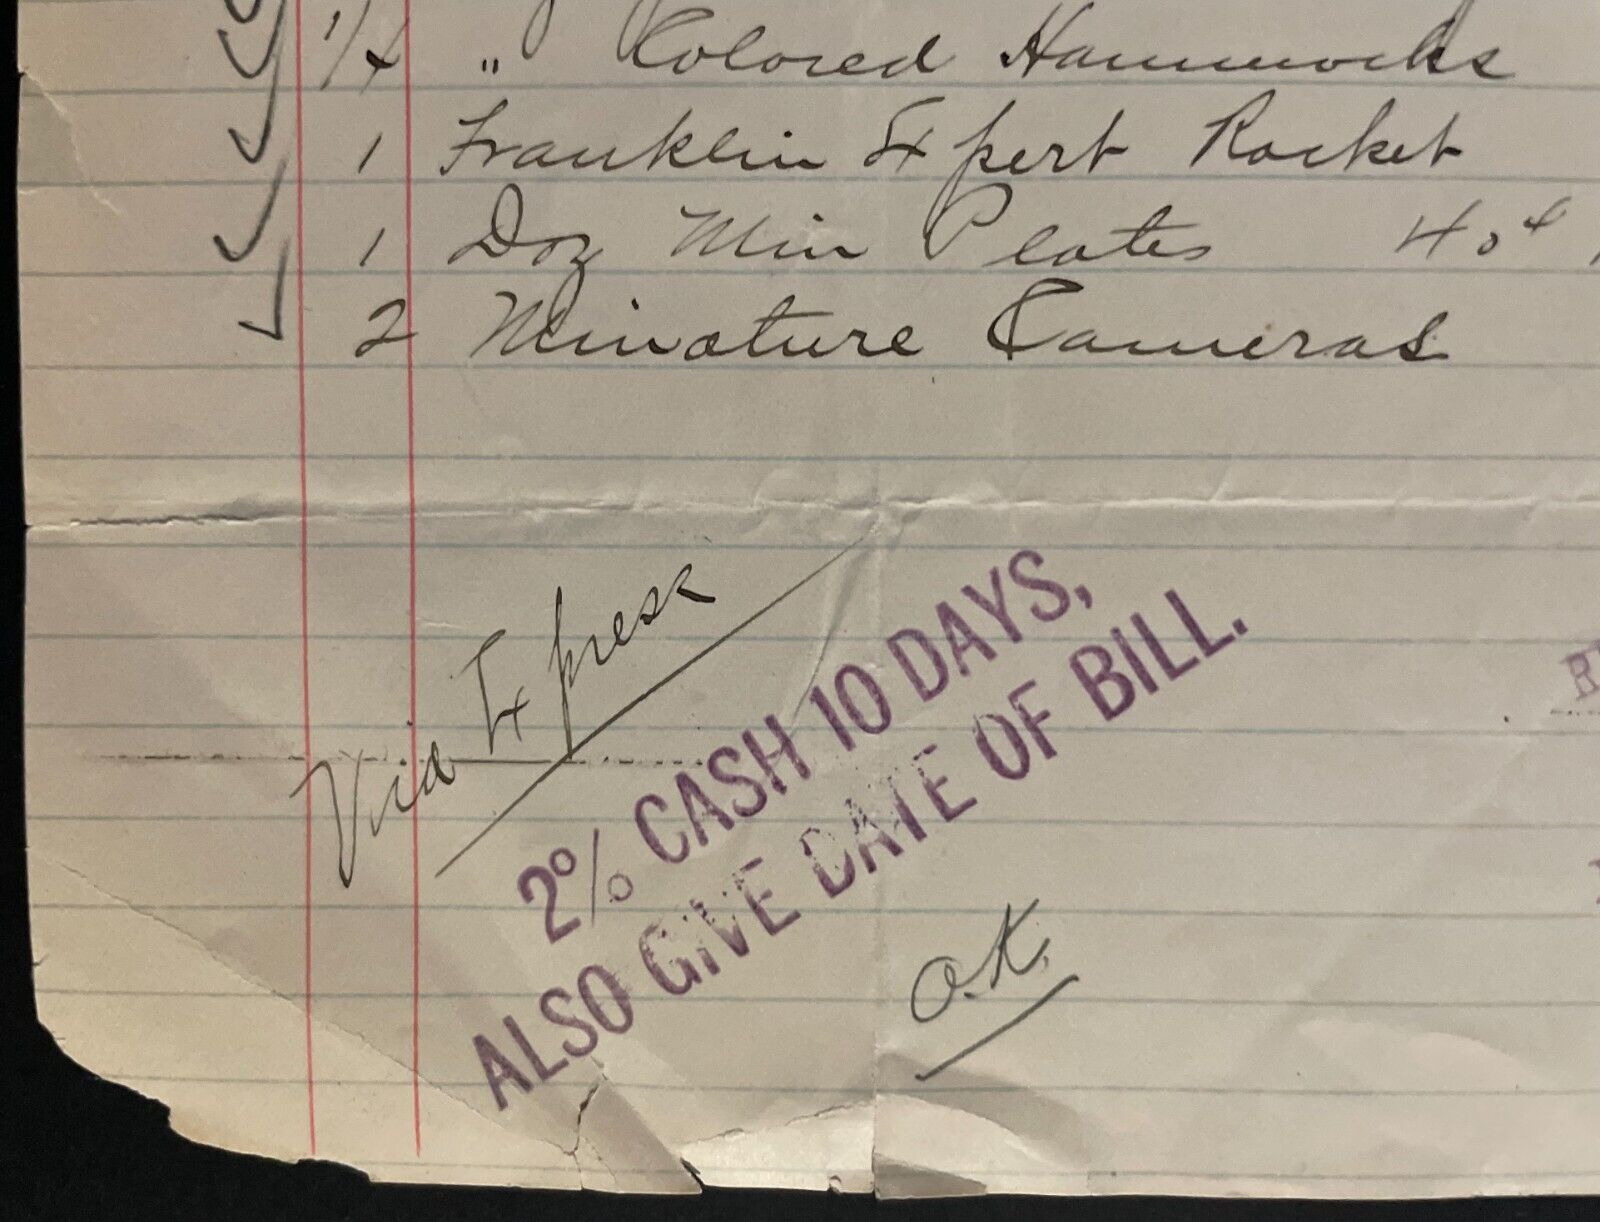 1/4 " Colored Hammocks
1 Franklin Expert Racket
1 Doz Min Plates 40¢
2 Minature Cameras
Via Express
2% CASH 10 DAYS,
ALSO GIVE DATE OF BILL.
O.K.